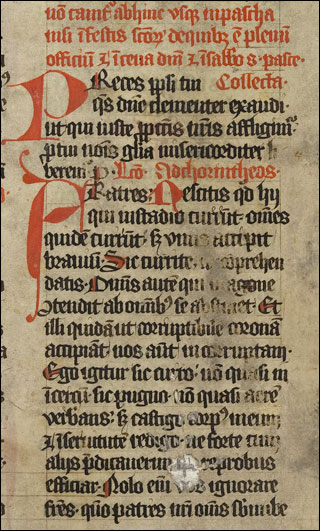 nō cantat᷒ abhinc usqꝫ in pascha
nisi ī festis scōꝝ de quibꝫ ē plenū
officiū I cena dnī I sabbo s· pasce·
Preces ppli tui Collecta·
qs dn̄e clementer exaudi
ut qui iuste ꝓ pctīs nr̄is affligim᷒
ꝓ tui noīs glīa misericorditer li
berem᷒ p· Lc̄o Ad chorintheos·
Fratres: Nescitis qd hij
qui in stadio currūt· om̄es
quidē currūt· sꝫ vnus accipit
brauiū· Sic currite ut cōprehen
datis· Om̄is autē qui in agone
ꝯtendit ab oīmbꝫ se abstinet· Et
illi quidā ut corruptibile coronā
accipiāt· nos aūt incorruptam·
Ego igitur sic curro· nō quasi in
incertū· sic pugno· nō quasi aerē
verbans· sꝫ castigo corpꝰ meum
I i seruitutē redigo· ne forte cum
alijs p̄dicauerim ip̄e reprobus
efficiar· Nolo enī vos ignorare
frēs· qm̄o patres nr̄i om̄s sub nube